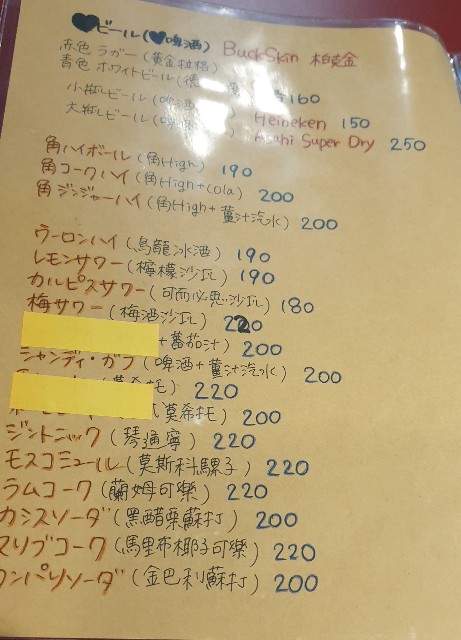 ♥ビール(♥啤酒) BuckSkin 柏克金
赤色 ラガー(黃金拉格)
青色 ホワイトビール(德 160
小瓶ビール(啤酒 Heineken 150
大瓶ビール(啤 Asahi Super Dry 250
角ハイボール(角High) 190
角コークハイ(角High+cola) 200
角ジンジャーハイ(角High+薑汁汽水) 200
ウーロンハイ(烏龍冰酒) 190
レモンサワー(檸檬沙瓦) 190
カルピスサワー(可而必思沙瓦) 180
梅サワー(梅酒沙瓦) 220
+蕃茄汁) 200
シャンディ・ガフ(啤酒+薑汁汽水) 200
莫希托) 220
莫希托) 200
ジントニック(琴通寧) 220
モスコミュール(莫斯科騾子) 220
ラムコーク(蘭姆可樂) 220
カシスソーダ(黑醋栗蘇打) 200
マリブコーク(馬里布椰子可樂) 220
カンパリソーダ(金巴利蘇打) 200